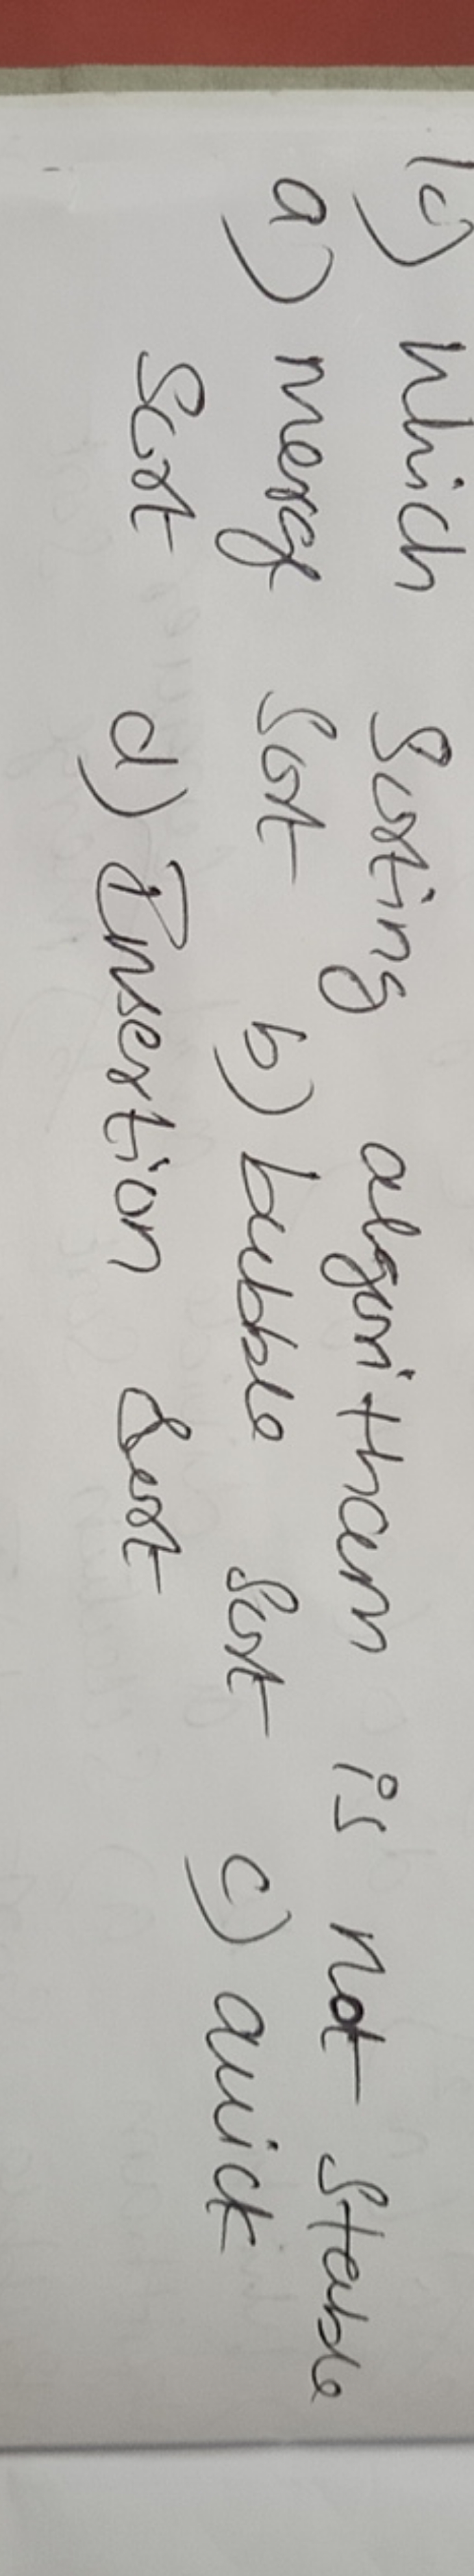 10) Which Sorting algoritham is not stable
a) merge Sort b) bubble Sort c) Quick
Sort d) Insertion Sort